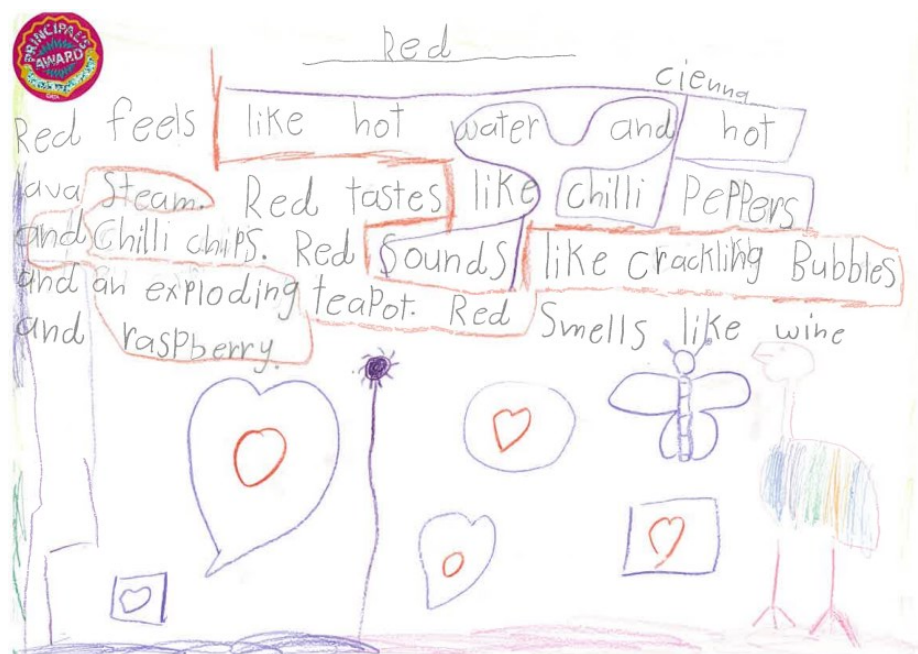 PRINCIPAL'S
AWARD
Red
cienna
Red feels like hot water and hot
lava Steam. Red tastes like chilli PePPers
and Chilli chips. Red Sounds like crackling Bubbles
and an exploding teaPot. Red Smells like wine
and raspberry.